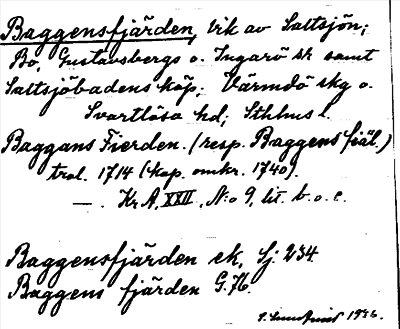 Baggensfjärden, vik av Saltsjön;
Bo, Gustavsbergs o. Ingarö sk samt
Saltsjöbadens köp; Värmdö skg o.
Svartlösa hd; Sthlms l.
Baggans Fierden. (resp. Baggens fiäl.)
trol. 1714 (kop. omkr. 1740).
— . Kr A, XXII, No 9, lit. b. o. c.
Baggensfjärden ek, Sj: 234.
Baggens fjärden G. 76.
1936.